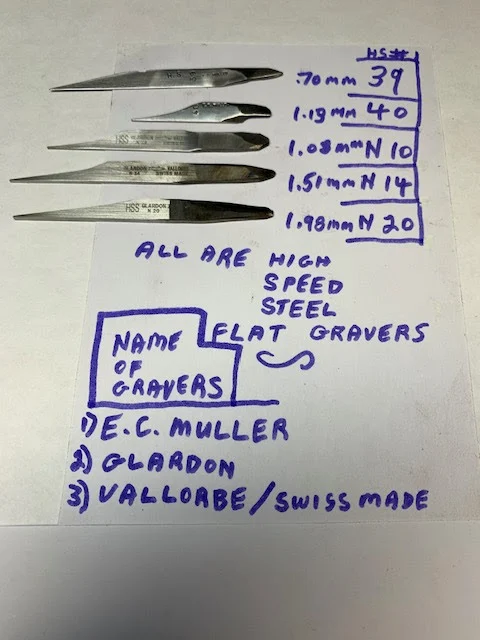 HS#
.70mm 39
1.19mm 40
1.08mm N 10
1.51mm N 14
1.98mm N 20
HSS GLARDON
N 20
ALL ARE HIGH
SPEED
STEEL
FLAT GRAVERS
NAME
OF
GRAVERS
1) E.C. MULLER
2) GLARDON
3) VALLORBE/SWISS MADE